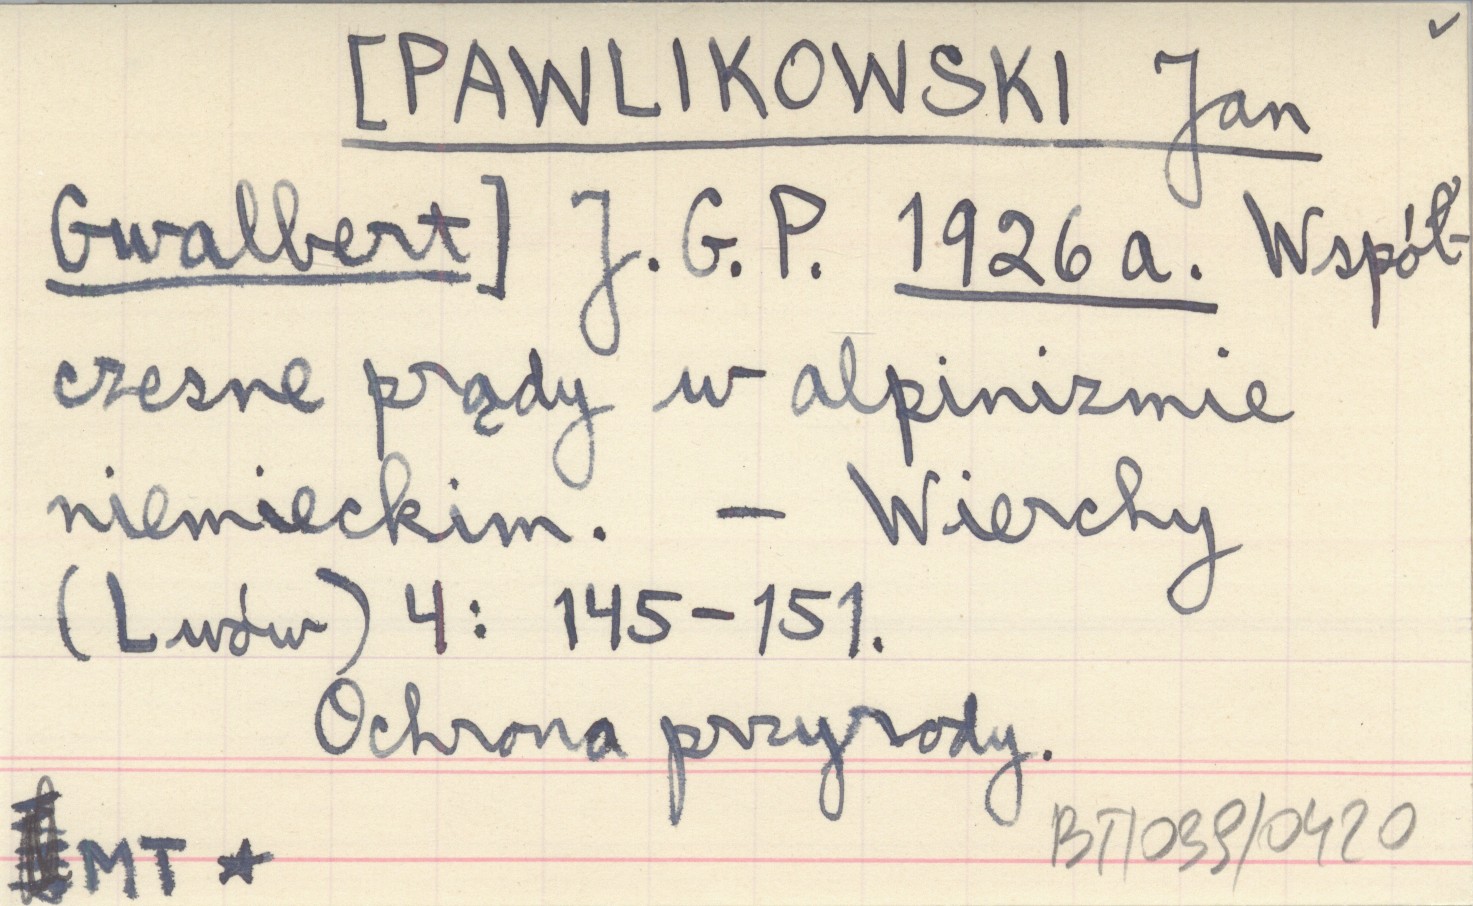 [PAWLIKOWSKI Jan
Gwalbert] J. G. P. 1926 a. Współ-
czesne prądy w alpinizmie
niemieckim. – Wierchy
(Lwów) 4: 145–151.
Ochrona przyrody.
MT ★
BT/039/0420